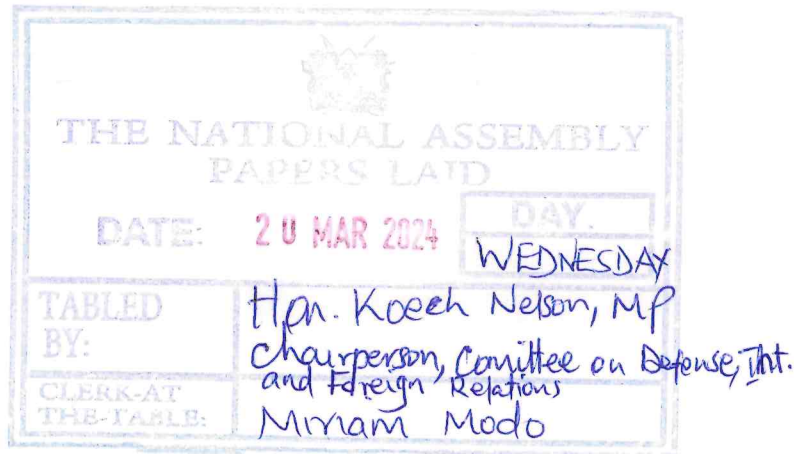 THE NATIONAL ASSEMBLY
PAPERS LAID
DATE: 20 MAR 2024 DAY.
WEDNESDAY
TABLED BY: Hon. Koech Nelson, MP
Chairperson, Comittee on Defense, Int.
and Foreign Relations
CLERK-AT THE-TABLE: Miriam Modo